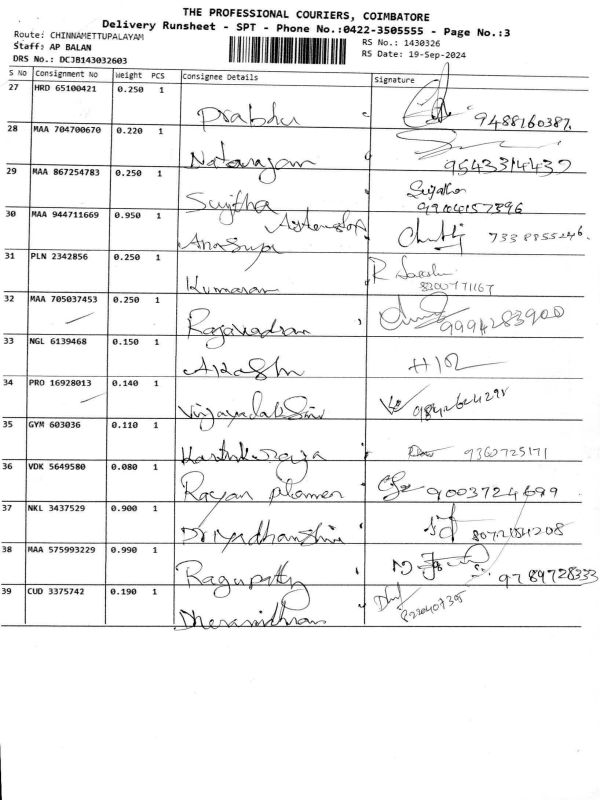 THE PROFESSIONAL COURIERS, COIMBATORE
Delivery Runsheet - SPT - Phone No.:0422-3505555 - Page No.:3
Route: CHINNAMETTUPALAYAM
Staff: AP BALAN
DRS No.: DCJB143032603
RS No.: 1430326
RS Date: 19-Sep-2024
S No Consignment No Weight PCS Consignee Details Signature
27 HRD 65100421 0.250 1 Prabhu 9488160387.
28 MAA 704700670 0.220 1 Natarajan 9543314432
29 MAA 867254783 0.250 1 Sujitha Sujatha
30 MAA 944711669 0.950 1 Anasuya 7338855246.
31 PLN 2342856 0.250 1 Kumaran 8200771167
32 MAA 705037453 0.250 1 9994283900
33 NGL 6139468 0.150 1 Akash
34 PRO 16928013 0.140 1
35 GYM 603036 0.110 1 Karthikraja 9360725171
36 VDK 5649580 0.080 1 Rayan 9003724699
37 NKL 3437529 0.900 1 Priyadharshini 8072184208
38 MAA 575993229 0.990 1 Ragupathy 9789728333
39 CUD 3375742 0.190 1